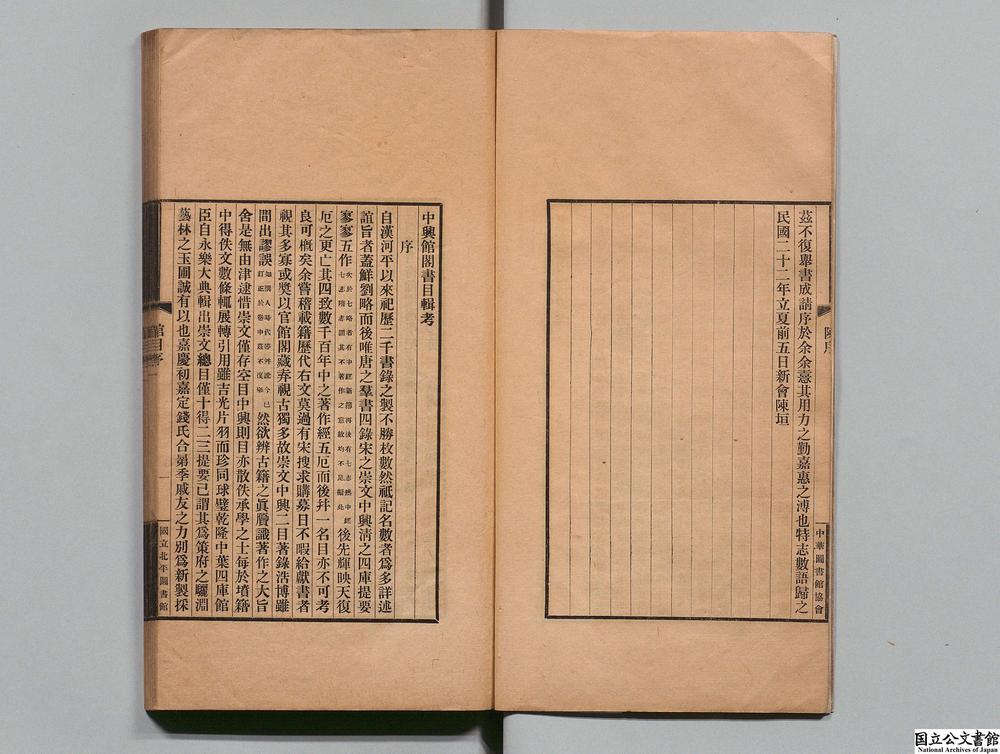 陳序
中華圖書館協會
茲不復舉書成請序於余余憙其用力之勤嘉惠之溥也特志數語歸之
民國二十二年立夏前五日新會陳垣
中興館閣書目輯考
序
自漢河平以來祀歷二千書錄之製不勝枚數然祗記名數者爲多詳述
誼旨者蓋鮮劉略而後唯唐之羣書四錄宋之崇文中興清之四庫提要
寥寥五作次於七略者有中經新簿再後有七志然中經七志隋志謂其不著作之意故均不足擬此後先輝映天復
厄之更亡其四致數千百年中之著作經五厄而後幷一名目亦不可考
良可慨矣余嘗稽載籍歷代右文莫過有宋搜求購募日不暇給獻書者
視其多寡或奬以官館閣藏弆視古獨多故崇文中興二目著錄浩博雖
間出謬誤如撰人時代等舛訛今已訂正於卷中茲不復舉然欲辨古籍之眞贗識著作之大旨
舍是無由津逮惜崇文僅存空目中興則目亦散佚承學之士每於墳籍
中得佚文數條輒展轉引用雖吉光片羽而珍同球璧乾隆中葉四庫館
臣自永樂大典輯出崇文總目僅十得二三提要已謂其爲策府之驪淵
藝林之玉圃誠有以也嘉慶初嘉定錢氏合弟季戚友之力別爲新製採
館目序
一
國立北平圖書館
国立公文書館
National Archives of Japan